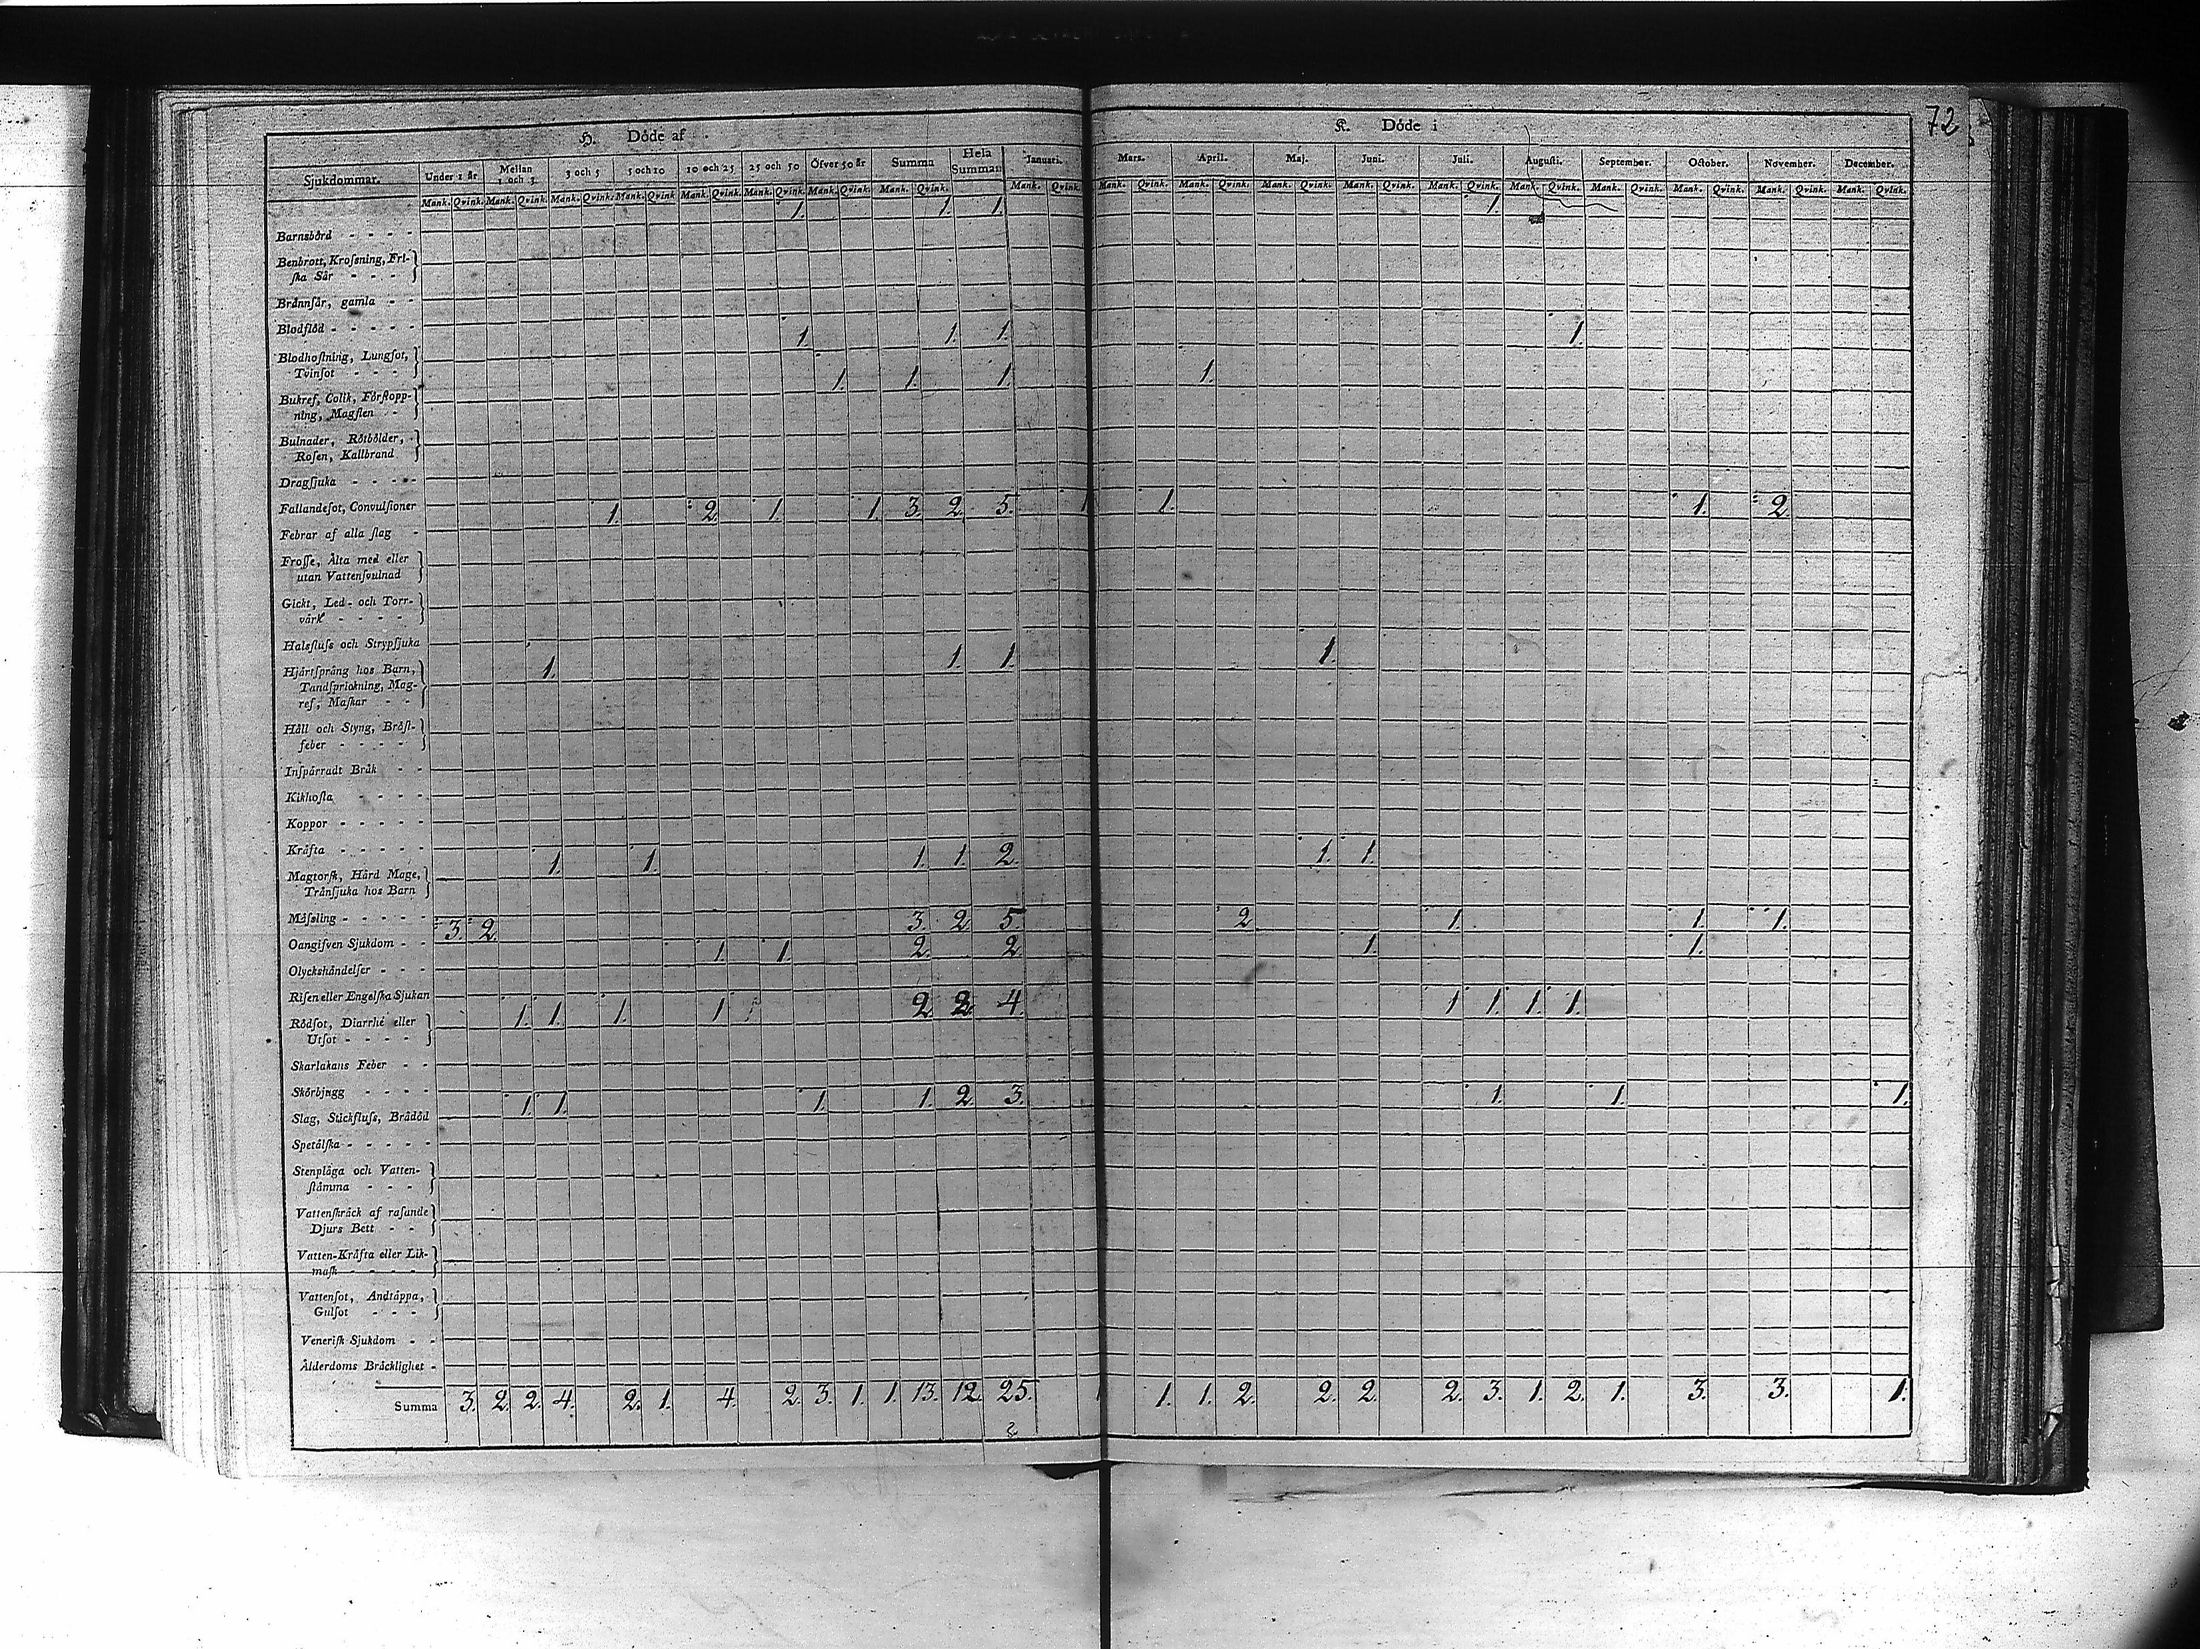 72
H. Döde af
K. Döde i
Sjukdommar. Under 1 år Mellan 1 och 3. 3 och 5 5 och 10 10 och 25 25 och 50 Öfver 50 år Summa Hela Summan Januari. Mars. April. Maj. Juni. Juli. Augusti. September. October. November. December.
Mank. Qvink. Mank. Qvink. Mank. Qvink. Mank. Qvink. Mank. Qvink. Mank. Qvink. Mank. Qvink. Mank. Qvink. Mank. Qvink. Mank. Qvink. Mank. Qvink. Mank. Qvink. Mank. Qvink. Mank. Qvink. Mank. Qvink. Mank. Qvink. Mank. Qvink. Mank. Qvink. Mank. Qvink.
1. 1. 1. 1.
Barnsbörd - - - -
Benbrott, Krosſning, Friſka Sår - - -
Brännſår, gamla - -
Blodflöd - - - - - 1. 1. 1. 1.
Blodhoſtning, Lungſot,
Tvinſot - - - - 1. 1. 1. 1.
Bukref, Colik, Förſtopp-
ning, Magſten - -
Bulnader, Rötbölder, -
Roſen, Kallbrand
Dragſjuka - - - -
Fallandeſot, Convulſioner 1. 2. 1. 1. 3. 2. 5. 1 1. 1. 2
Febrar af alla ſlag -
Froſſe, Älta med eller
utan Vattenſvulnad
Gickt, Led- och Torr-
värk - - - -
Halsfluſs och Strypſjuka
Hjärtſprång hos Barn, 1. 1. 1. 1.
Tandſprickning, Mag-
ref, Maſkar - -
Håll och Styng, Bröſt-
feber - - - -
Inſpärradt Bråk - -
Kikhoſta - - - -
Koppor - - - - -
Kräfta - - - - - 1. 1. 1. 1. 2. 1. 1.
Magtorſk, Hård Mage,
Tränſjuka hos Barn
Mäſsling - - - - - 3. 2. 3. 2. 5. 2. 1. 1. 1.
Oangifven Sjukdom - - 1. 1. 2. 2. 1. 1.
Olyckshändelſer - - -
Riſen eller Engelſka Sjukan 1. 1. 1. 1. 2 2 4. 1. 1. 1. 1.
Rödſot, Diarrhé eller
Utſot - - - -
Skarlakans Feber - -
Skörbjugg - - - - 1. 1. 1. 1. 2. 3. 1. 1. 1.
Slag, Stickfluſs, Brådöd
Spetälſka - - - - -
Stenplåga och Vatten-
ſtämma - - -
Vattenſkräck af raſande
Djurs Bett - -
Vatten-Kräfta eller Lik-
maſk - - - -
Vattenſot, Andtäppa,
Gulſot - - -
Veneriſk Sjukdom - -
Ålderdoms Bräcklighet -
Summa 3. 2. 2. 4. 2. 1. 4. 2. 3. 1. 1. 13. 12. 25. 1 1. 1. 2. 2. 2. 2. 3. 1. 2. 1. 3. 3. 1.